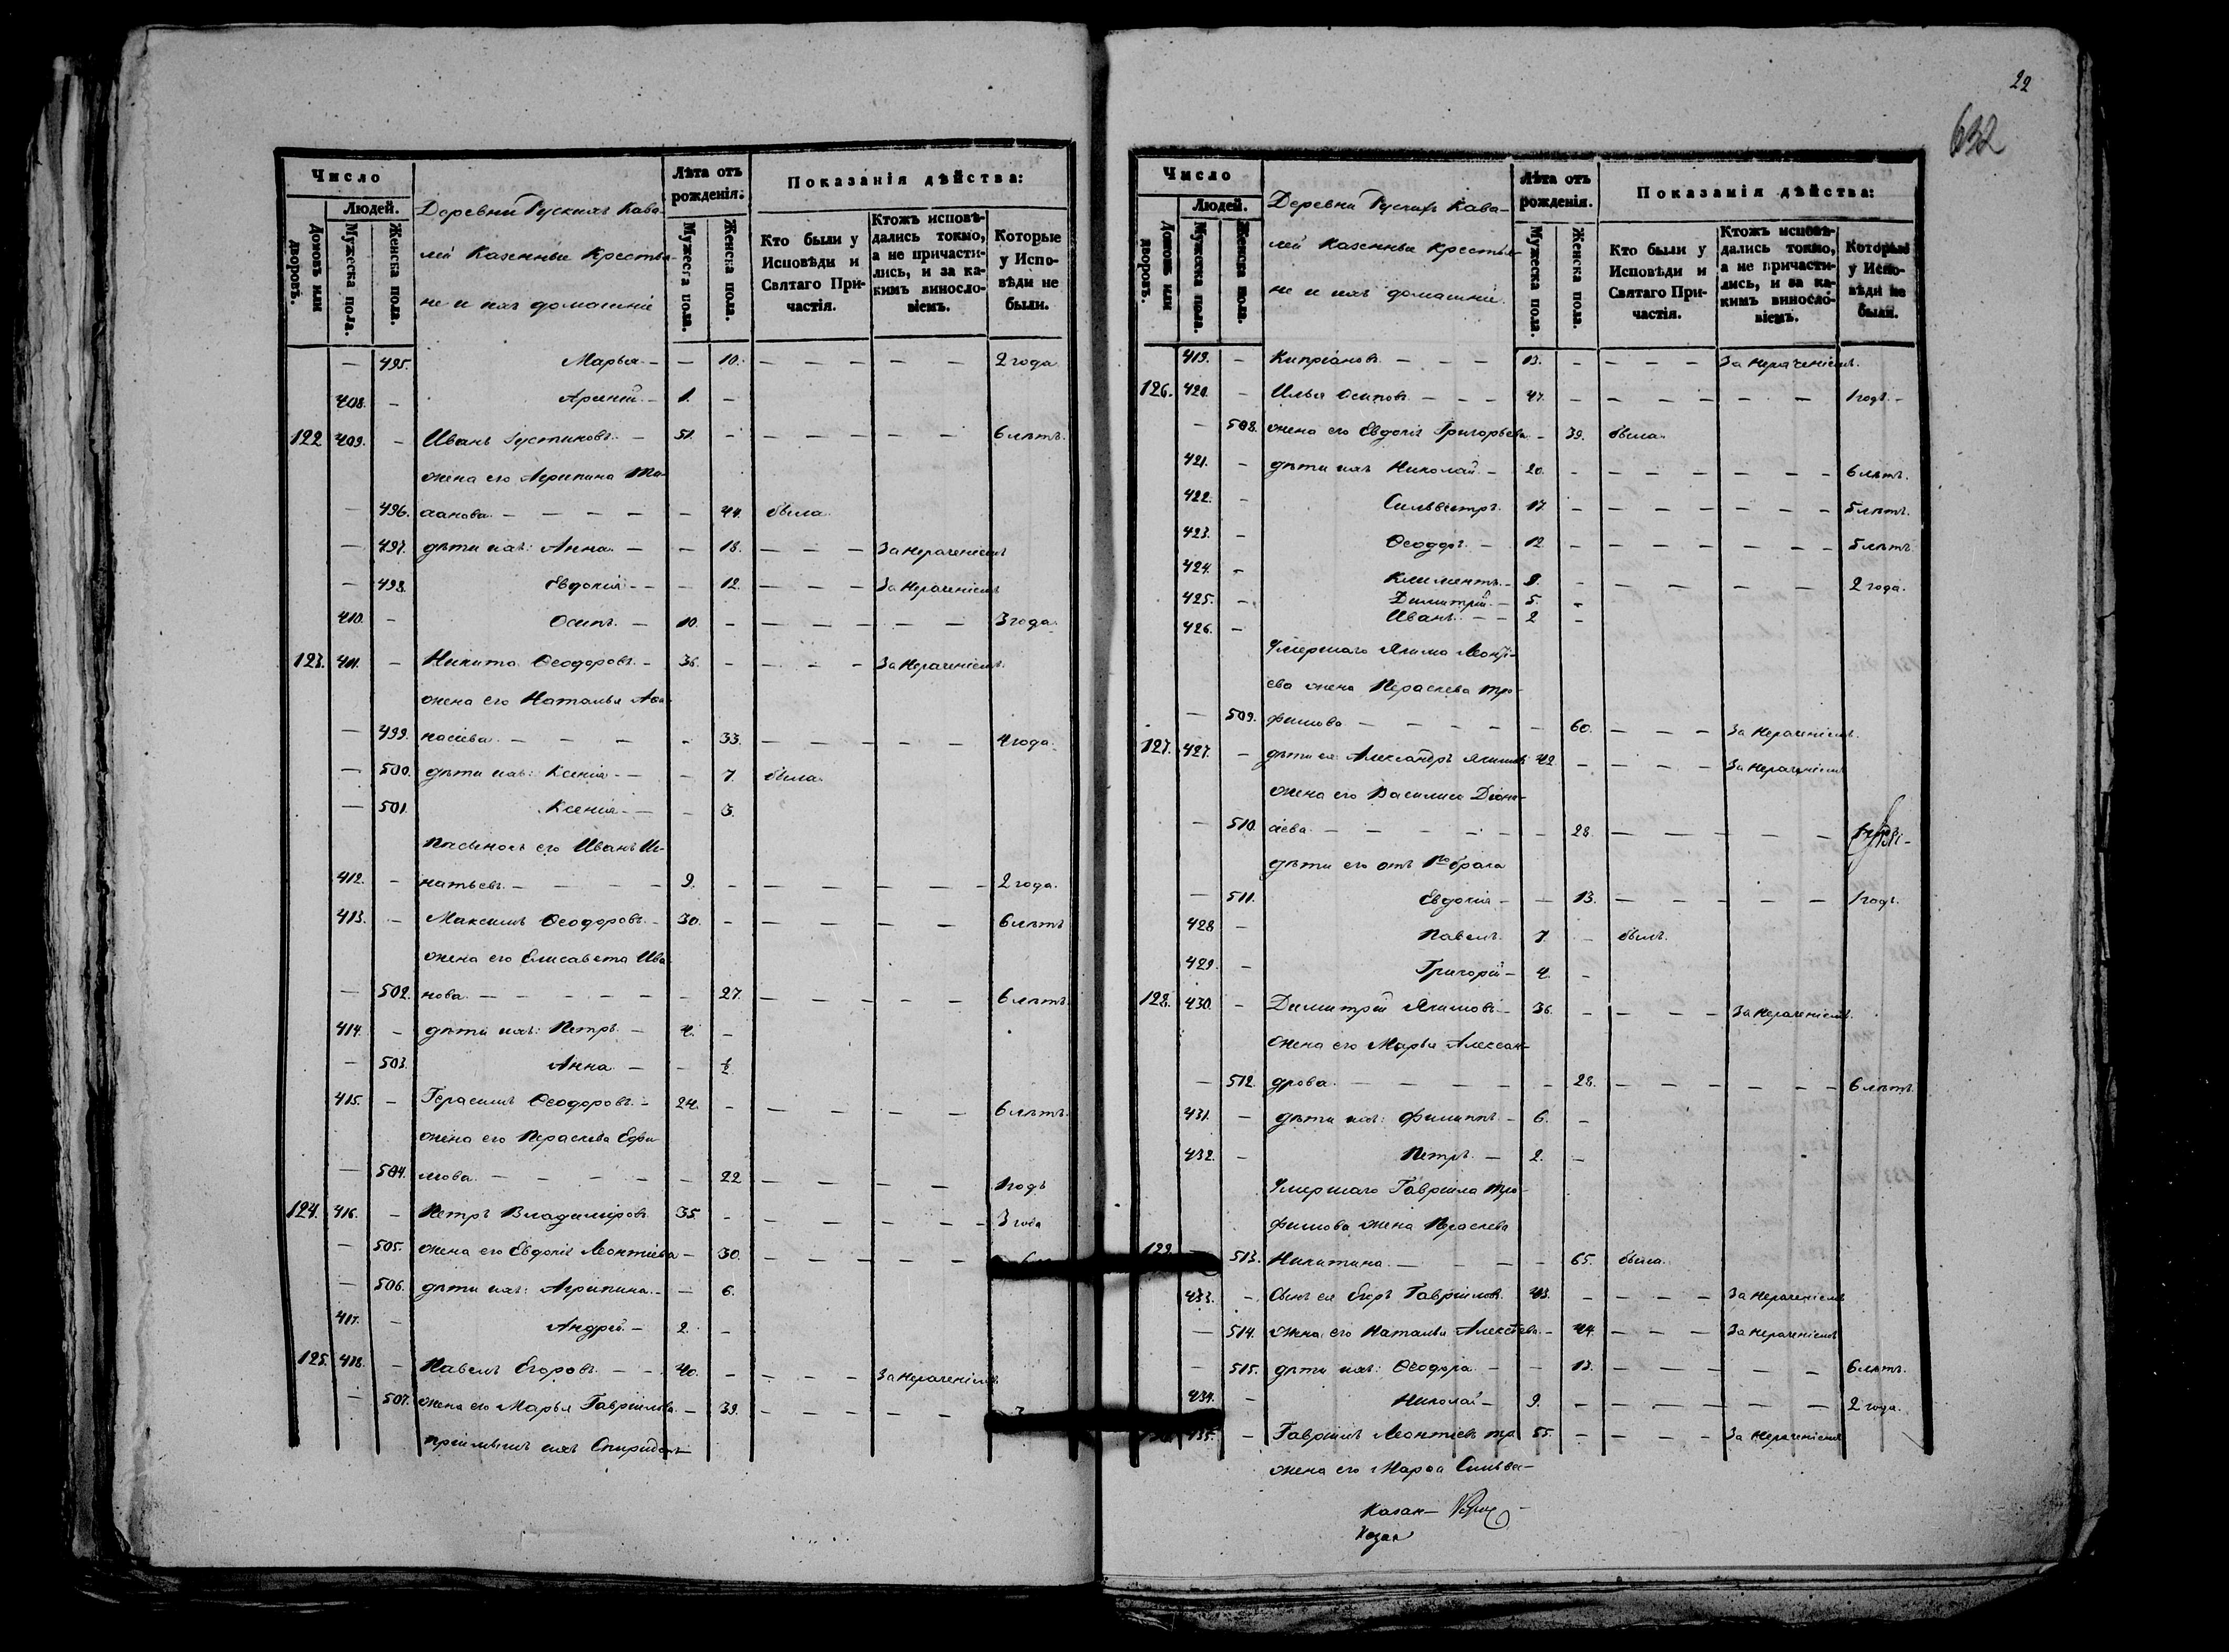 Число
Людей.
Домовъ или дворовъ.
Мужеска пола.
Женска пола.
Деревни Рускихъ Кава-
лей Казенные Крестья-
не и ихъ домашніе
Лѣта отъ рожденія.
Мужеска пола.
Женска пола.
Показанія дѣйства:
Кто были у Исповѣди и Святаго При-частія.
Ктожъ исповѣ-дались токмо, а не причасти-лись, и за ка-кимъ виносло-віемъ.
Которые у Испо-вѣди не были.
— 495. Марья — — 10. — — — — — 2 года
408. — Арсеній — 1. —
122 409. — Иванъ Густиновъ — 51. — — — — — — 6 лѣтъ.
жена его Агрипина
— 496. — — — — — 44. была
— 497. дѣти ихъ: Анна — — 18. — — — За нераченіемъ
— 498. Евдокія — — — 12. — — — За нераченіемъ
410. — Осипъ. — 10. — — — — — — 3 года.
123. 411. — Никита Ѳеодоровъ — 36. — — — — За нераченіемъ.
жена его Наталья Аѳа-
— 499. насіева — — — — 33. — — — — — 4 года.
— 500. дѣти ихъ: Ксенія — — — 7. была
— 501. Ксенія — — — 3.
Пасынокъ его Иванъ Иг-
412. — натьевъ — — — — 9. — — — — — — 2 года.
413. — Максимъ Ѳеодоровъ — 30. — — — — — — 6 лѣтъ
жена его Елисавета Ива-
— 502. нова — — — — — — 27. — — — — — 6 лѣтъ.
414. — дѣти ихъ: Петръ — 4. —
— 503. Анна — — ½.
415. — Герасимъ Ѳеодоровъ — 24. — — — — — — 6 лѣтъ.
жена его Параскева Ефи-
— 504. мова — — — — — — 22 — — — — — 1 годъ
124. 416. — Петръ Владиміровъ 35. — — — — — — 3 года
— 505. жена его Евдокія Леонтіева — 30. — — — — —
— 506. дѣти ихъ: Агрипина — — 6.
417. — Андрей — 2. —
125. 418. — Павелъ Егоровъ — — 40. — — — — За нераченіемъ
— 507. жена его Марья Гавріилова — 39. — — — — —
пріимышъ ихъ Спиридонъ
22
632
Число
Людей.
Домовъ или дворовъ.
Мужеска пола.
Женска пола.
Деревни Рускихъ Кава-
лей Казенные Крестья-
не и ихъ домашніе.
Лѣта отъ рожденія.
Мужеска пола.
Женска пола.
Показанія дѣйства:
Кто были у Исповѣди и Святаго При-частія.
Ктожъ исповѣ-дались токмо, а не причасти-лись, и за ка-кимъ виносло-віемъ.
Которые у Испо-вѣди не были.
419. — Кипріановъ — — — 13. — — — — За нераченіемъ.
126. 420. — Илья Осиповъ — — — 47. — — — — — — 1 годъ. —
— 508. жена его Евдокія Григорьева — 39. была
421. — дѣти ихъ Николай — 20. — — — — — — 6 лѣтъ.
422. — Сильвестръ. 17. — — — — — — 5 лѣтъ.
423. — Ѳеодоръ — 12 — — — — — — 5 лѣтъ
424. — Климентъ — 9. — — — — — — 2 года.
425. — Димитрій — 5. —
426. — Иванъ — — 2 —
Умершаго Якима Леонті-
ева жена Параскева Тро-
— 509. фимова — — — — — 60. — — — За нераченіемъ.
127. 427. — дѣти ея Александръ Якимовъ 42 — — — — За нераченіемъ
жена его Василиса Діони-
— 510. сіева — — — — — — 28. — — — — —
дѣти его отъ 1го брака
— 511. Евдокія — — 13. — — — — — 1 годъ.
428 — Павелъ. 7. — былъ.
429. — Григорій — 4. —
128. 430. — Димитрій Якимовъ — 36. — — — — За нераченіемъ.
жена его Марья Алексан-
— 512. дрова — — — — — — 28. — — — — — — 6 лѣтъ.
431. — дѣти ихъ: Филиппъ — 6. —
432. — Петръ — 2. —
Умершаго Гавріила Тро-
фимова жена Параскева
129. — 513. Никитина — — — — 65. была.
433. — Сынъ ея Егоръ Гавріиловъ. 43. — — — — За нераченіемъ
— 514. жена его Наталья Алексѣева — 44. — — — За нераченіемъ
— 515. дѣти ихъ: Ѳеодора — — 13. — — — — — 6 лѣтъ.
434. — Николай — 9. — — — — — — 2 года.
435. — Гавріилъ Леонтіевъ 55. — — — — За нераченіемъ
жена его Марѳа Сильве-